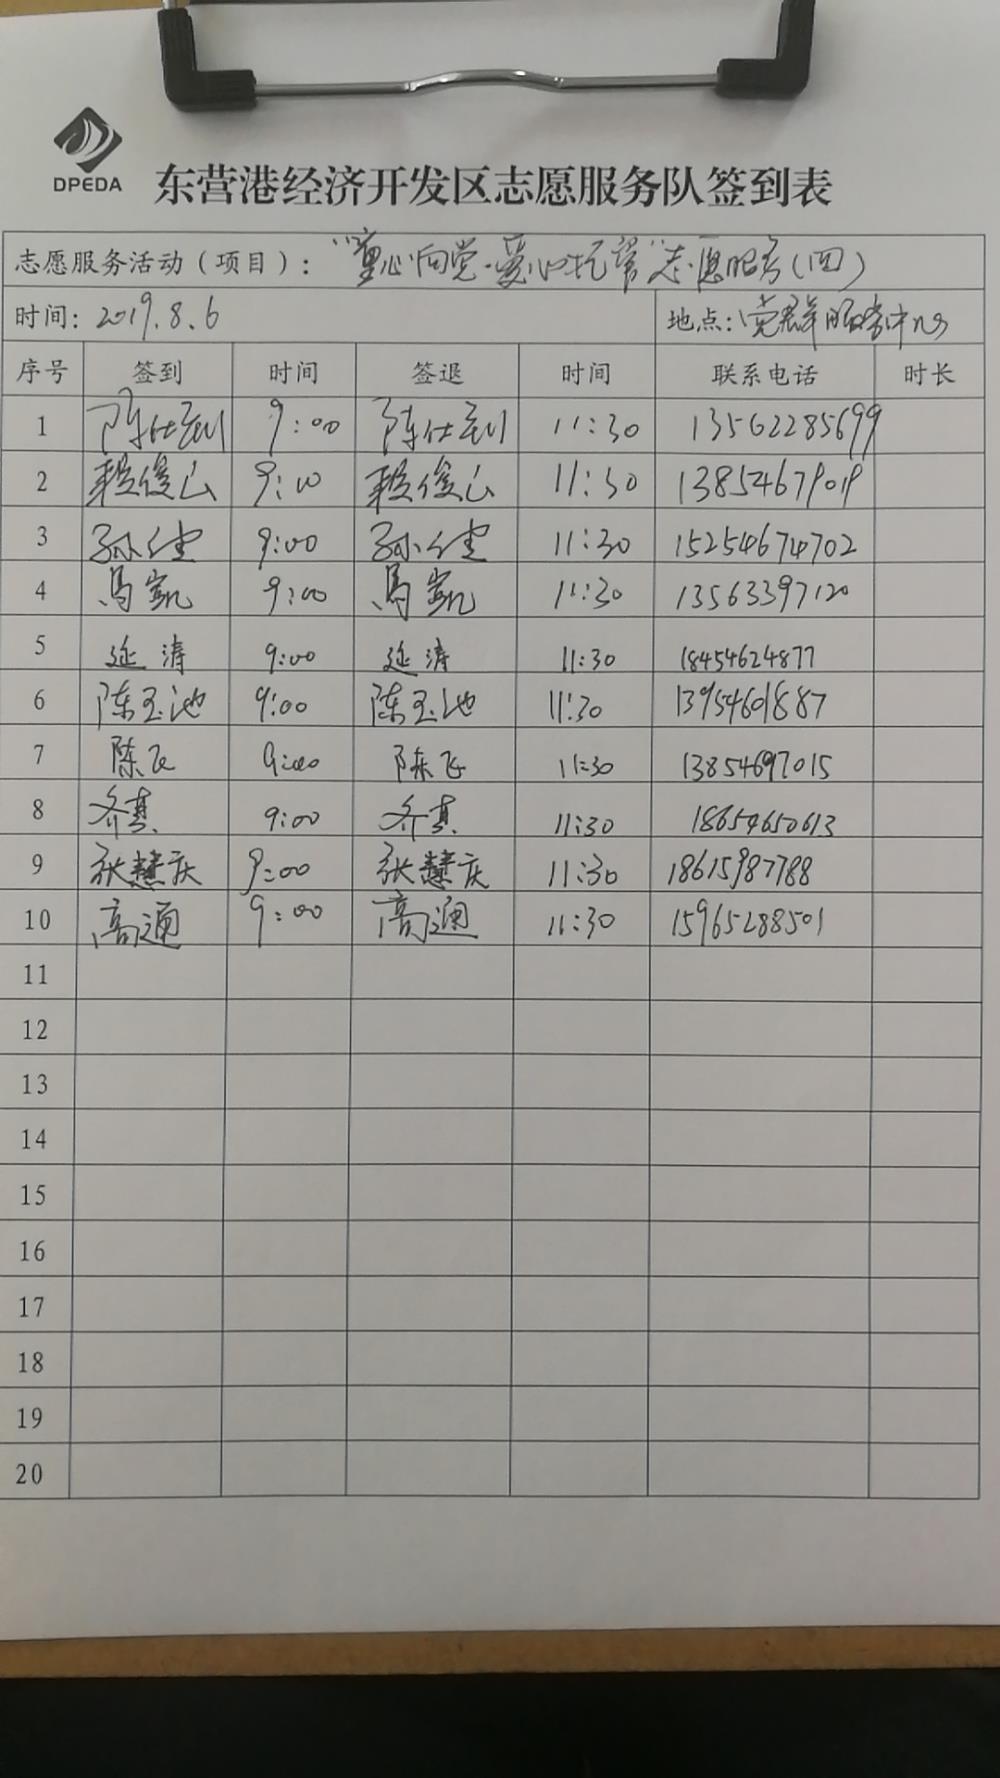 DPEDA
东营港经济开发区志愿服务队签到表
志愿服务活动（项目）： "童心向党·爱心托管"志愿服务（四）
时间：2019.8.6 地点：党群服务中心
序号 签到 时间 签退 时间 联系电话 时长
1 陈仕刚 9:00 陈仕刚 11:30 13562285699
2 9:00 11:30 13854679019
3 孙健 9:00 孙健 11:30 15254674702
4 马凯 9:00 马凯 11:30 13563397120
5 延涛 9:00 延涛 11:30 18454624877
6 陈玉池 9:00 陈玉池 11:30 13954601887
7 陈飞 9:00 陈飞 11:30 13854697015
8 齐真 9:00 齐真 11:30 18654650613
9 张慧庆 9:00 张慧庆 11:30 18615987788
10 高通 9:00 高通 11:30 15965288501
11
12
13
14
15
16
17
18
19
20